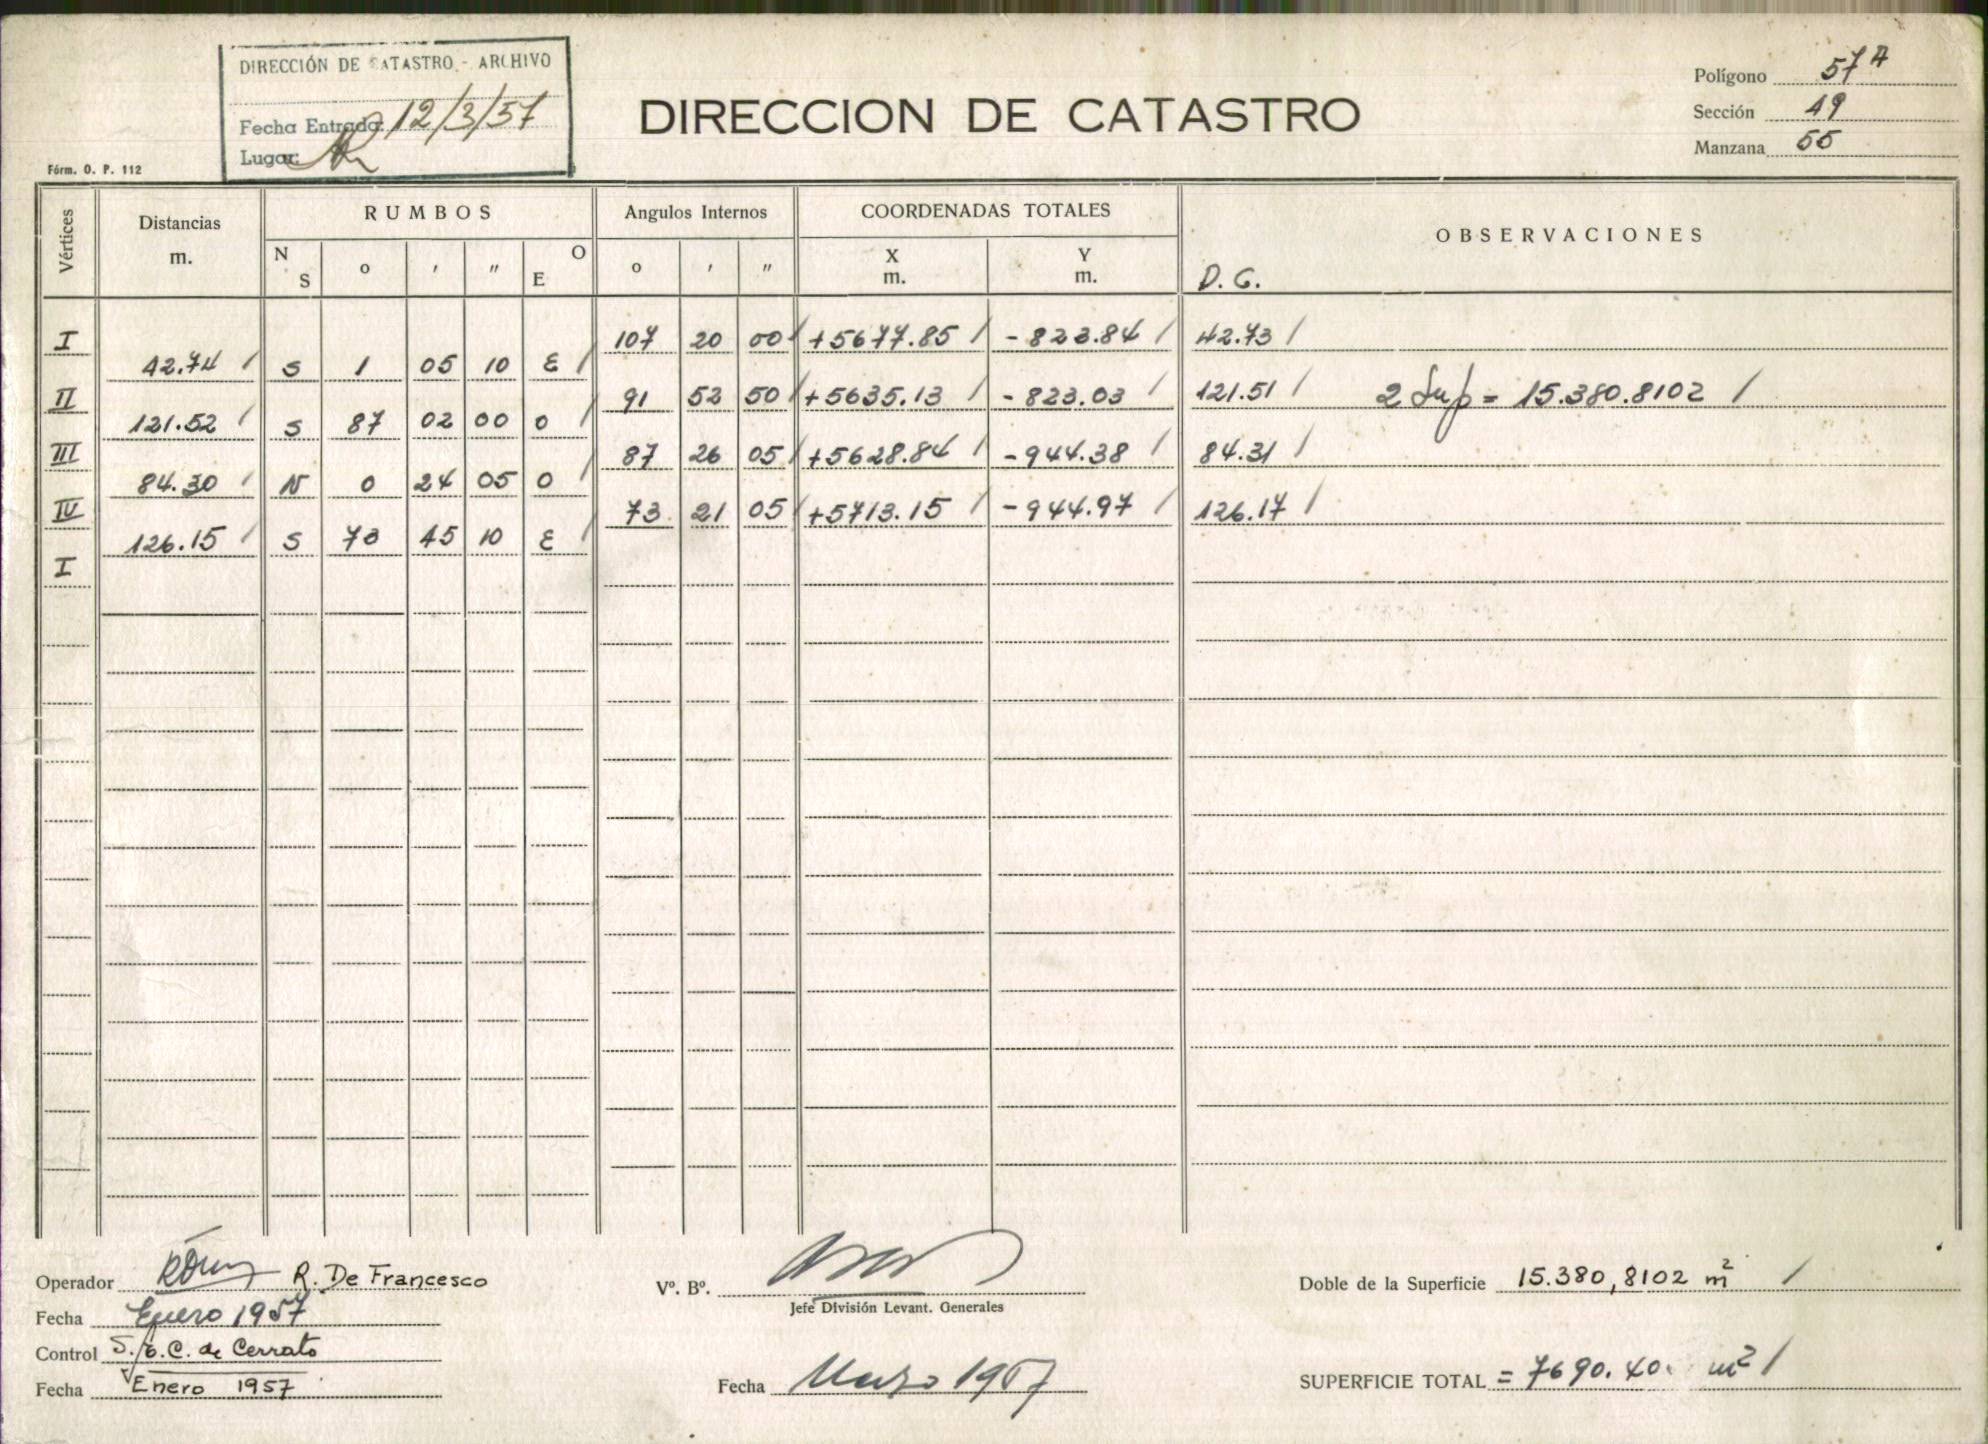 DIRECCIÓN DE CATASTRO - ARCHIVO
Fecha Entrada: 12/3/57
Lugar:
Fórm. O. P. 112
DIRECCION DE CATASTRO
Polígono 57 A
Sección 49
Manzana 55
Vértices Distancias m. RUMBOS Angulos Internos COORDENADAS TOTALES OBSERVACIONES
N S o ' " O E o ' " X m. Y m. D. G.
I 107 20 00 / +5677.85 / -823.84 / 42.73 /
42.74 / S 1 05 10 E /
II 91 52 50 / +5635.13 / -823.03 / 121.51 / 2 Sup = 15.380.8102 /
121.52 / S 87 02 00 O /
III 87 26 05 / +5628.84 / -944.38 / 84.31 /
84.30 / N 0 24 05 O /
IV 73 21 05 / +5713.15 / -944.97 / 126.17 /
126.15 / S 73 45 10 E /
I
Operador R. De Francesco
Fecha Enero 1957
Control S. E. C. de Cerrato
Fecha Enero 1957
Vº. Bº.
Jefe División Levant. Generales
Fecha Marzo 1957
Doble de la Superficie 15.380,8102 m² /
SUPERFICIE TOTAL = 7690.40. m² /